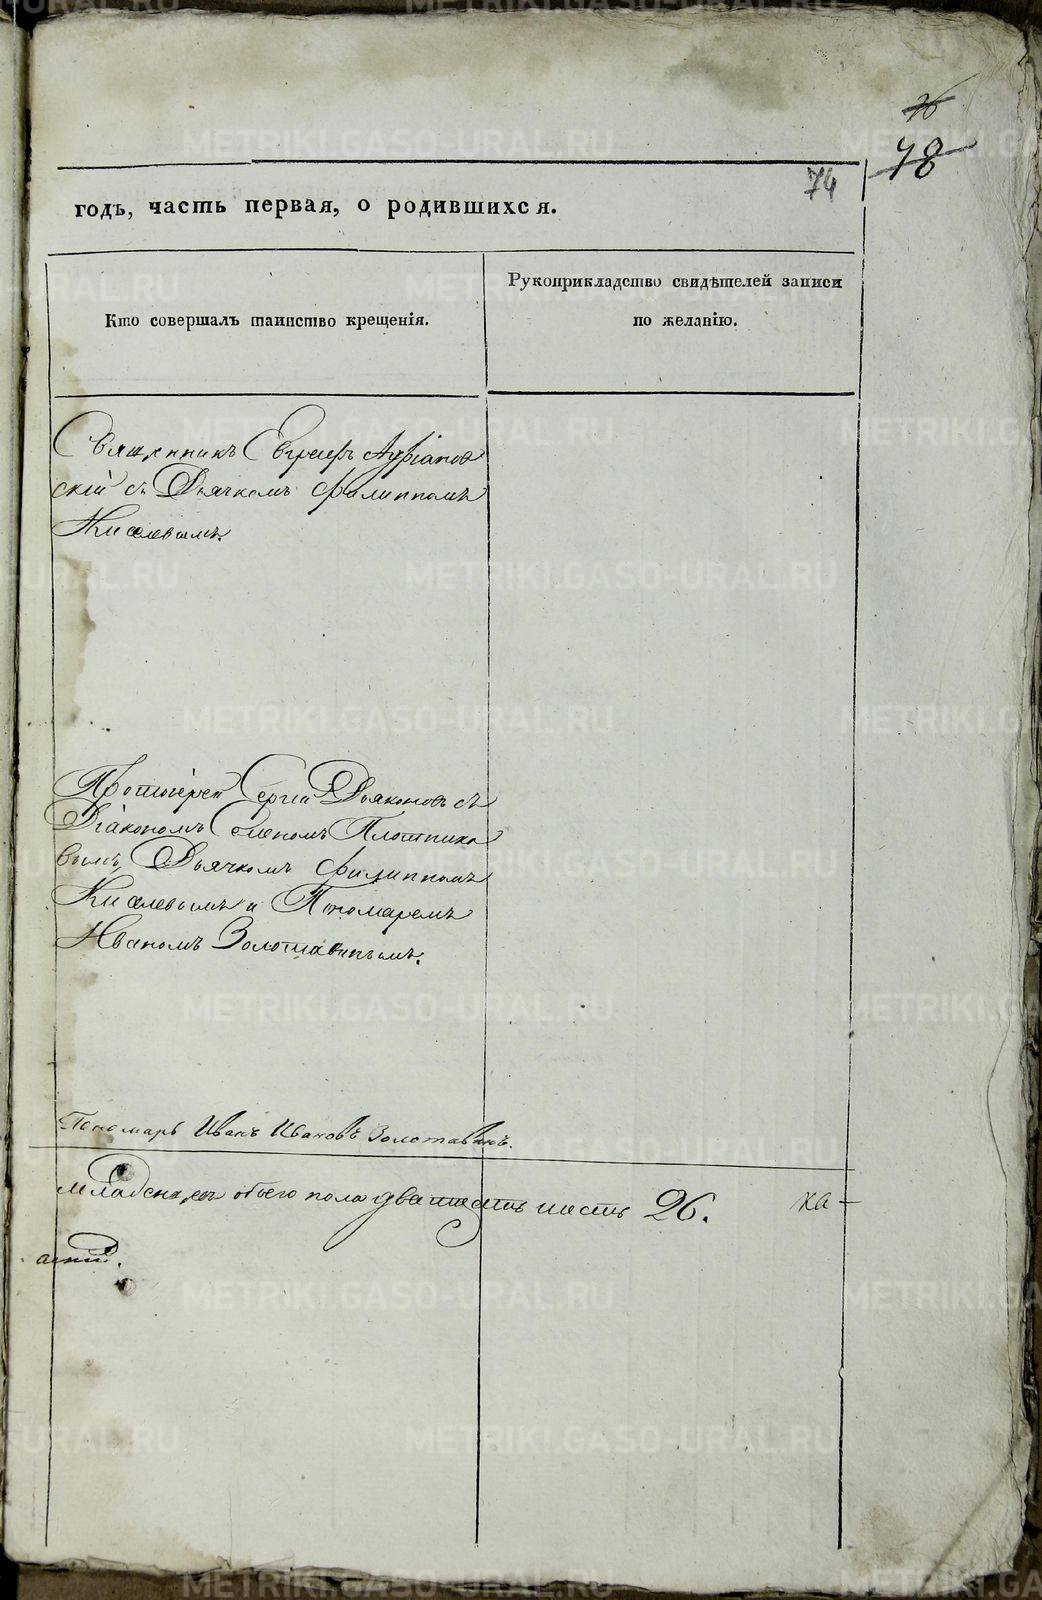 78
74
годъ, часть первая, о родившихся.
Кто совершалъ таинство крещенія.
Рукоприкладство свидѣтелей записи
по желанію.
Священникъ
скій съ Дьячкомъ Филиппомъ
Киселевымъ.
Протоіерей Сергій Дьяконовъ съ
Діакономъ Плотнико
вымъ, Дьячкомъ Филиппомъ
Киселевымъ и Пономаремъ
Иваномъ Золотавинымъ.
Пономарь Иванъ Ивановъ Золотавинъ.
младенцевъ обоего пола двадцать шесть 26.
METRIKI.GASO-URAL.RU